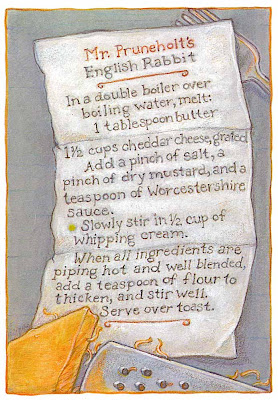 Mr. Pruneholt's
English Rabbit
In a double boiler over
boiling water, melt:
1 tablespoon butter
1½ cups cheddar cheese, grated
Add a pinch of salt, a
pinch of dry mustard, and a
teaspoon of Worcestershire
sauce.
Slowly stir in ½ cup of
whipping cream.
When all ingredients are
piping hot and well blended,
add a teaspoon of flour to
thicken, and stir well.
Serve over toast.